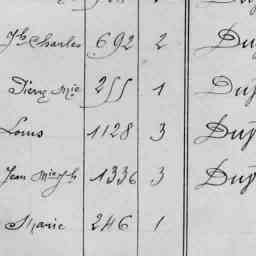 Jh Charles 692 2 Du
Pierre Mie 255 1 Du
Louis 1128 3 Du
Jean Mie Jh 1336 3 Du
Marie 246 1